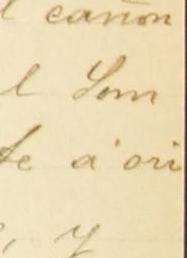 l cañon
l Som
te a' ori
, y